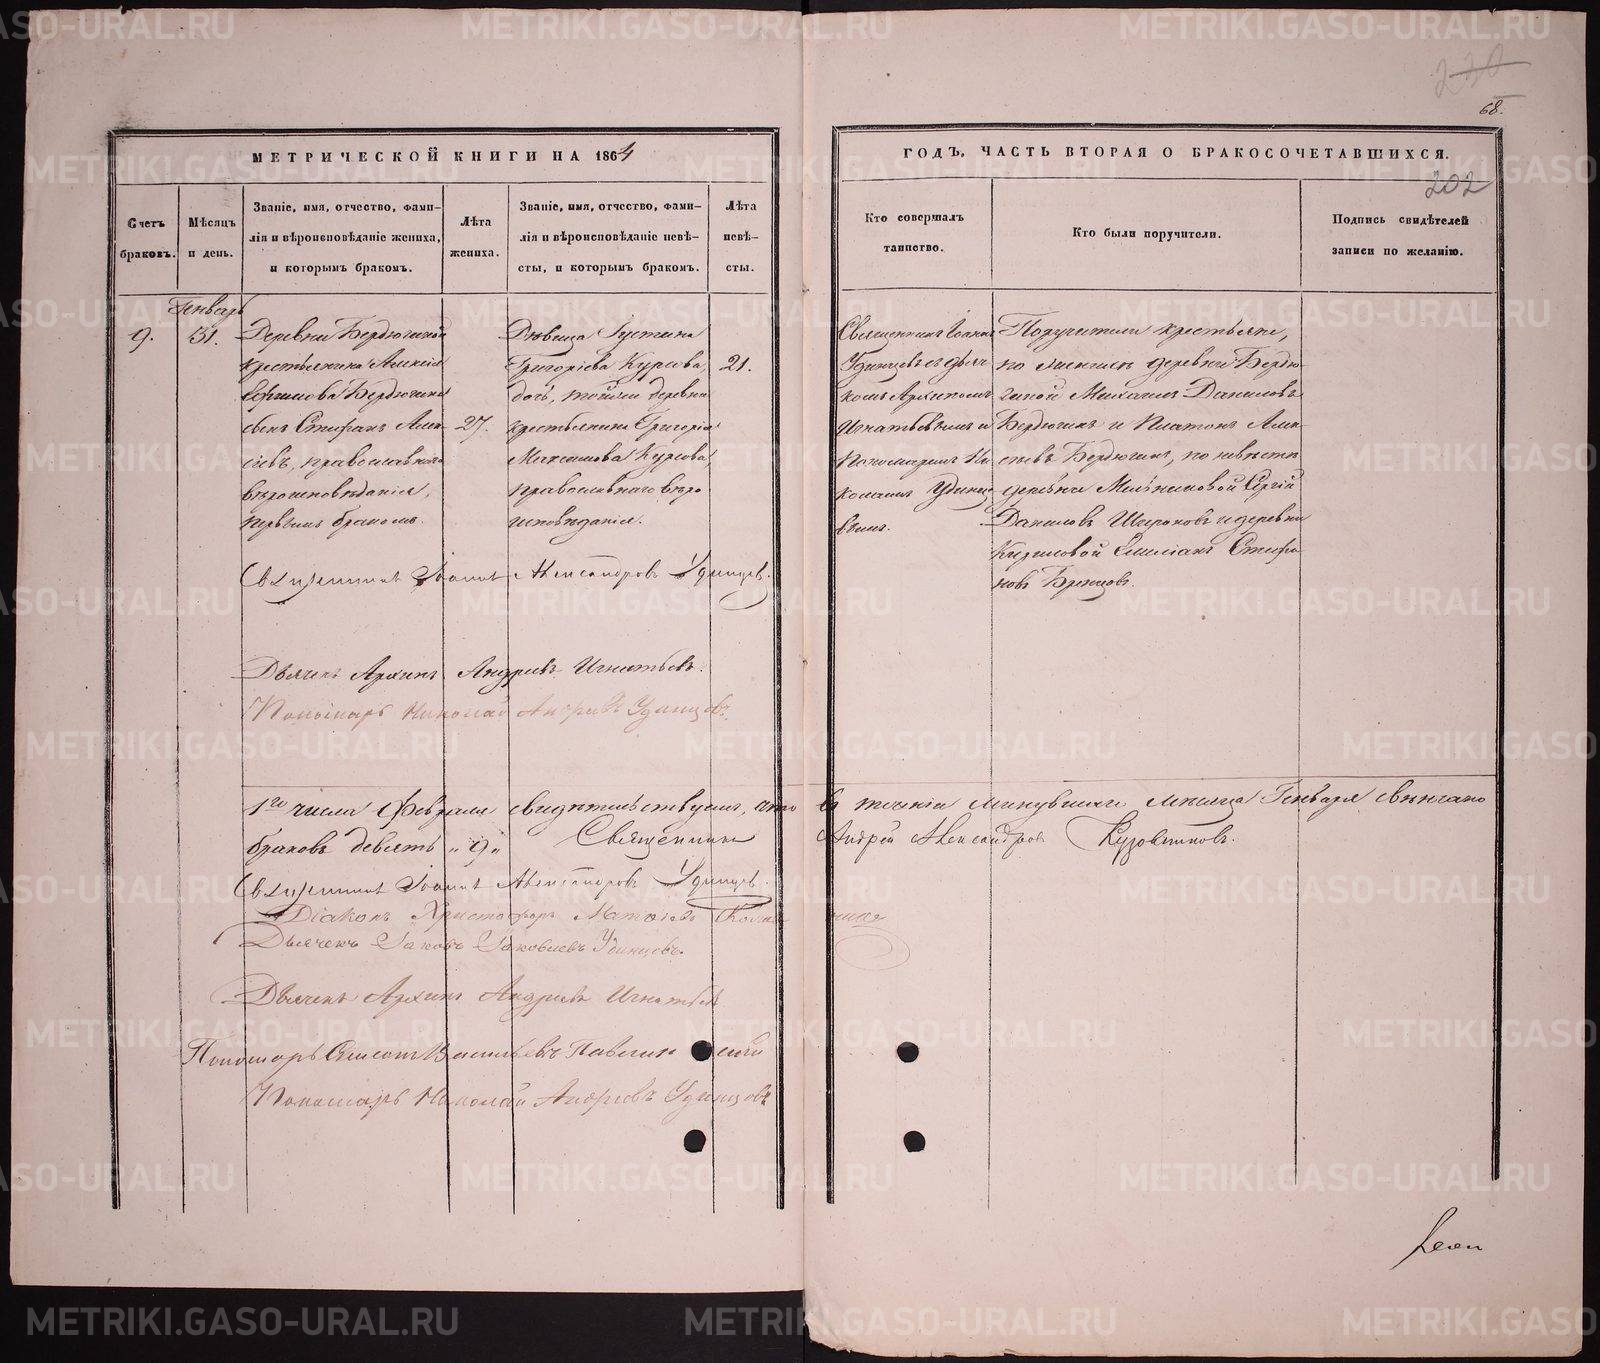 230
68.
МЕТРИЧЕСКОЙ КНИГИ НА 1864
ГОДЪ, ЧАСТЬ ВТОРАЯ О БРАКОСОЧЕТАВШИХСЯ.
202
Счетъ
браковъ.
Мѣсяцъ
и день.
Званіе, имя, отчество, фами-
лія и вѣроисповѣданіе жениха,
и которымъ бракомъ.
Лѣта
жениха.
Званіе, имя, отчество, фами-
лія и вѣроисповѣданіе невѣ-
сты, и которымъ бракомъ.
Лѣта
невѣ-
сты.
Кто совершалъ
таинство.
Кто были поручители.
Подпись свидѣтелей
записи по желанію.
Генварь
9.
31.
Деревни Бердюгиной
крестьянина Алексія
Ефимова Бердюгина
сынъ Стефанъ Алек-
сіевъ, православнаго
вѣроисповѣданія,
первымъ бракомъ.
27.
Дѣвица Густина
Григоріева Курсова,
дочь, тойже деревни
крестьянина Григорія
Максимова Курсова,
православнаго вѣро
исповѣданія.
21.
Священникъ Іоаннъ
Удинцевъ съ дьяч-
комъ Архипомъ
Игнатьевымъ и
Пономаремъ Ни
колаемъ Удинце
вымъ.
Поручители крестьяне,
по женихѣ деревни Бердю-
гиной Михаилъ Даниловъ
Бердюгинъ и Платонъ Алек-
сѣевъ Бердюгинъ, по невѣстѣ
деревни Мельниковой Сергій
Даниловъ Широковъ и деревни
Кириловой Емиліанъ Стефа
новъ
Священникъ Іоаннъ Александровъ Удинцев.
Дьячекъ Архипъ Андреевъ Игнатьевъ.
Пономарь Николай Андреевъ Удинцовъ.
1го числа Февраля свидѣтельствуемъ, что въ теченіи минувшаго мѣсяца Генваря вѣнчано
браковъ девять „9„ Священникъ Андрей Александровъ Кузовниковъ.
Священникъ Іоаннъ Александровъ Удинцев.
Діаконъ Христофоръ Матвіевъ
Дьячекъ Іаковъ Іаковлевъ Удинцовъ.
Дьячекъ Архипъ Андреевъ Игнатьев
Пономарь Васильевъ
Пономарь Николай Андреевъ Удинцовъ
METRIKI.GASO-URAL.RU